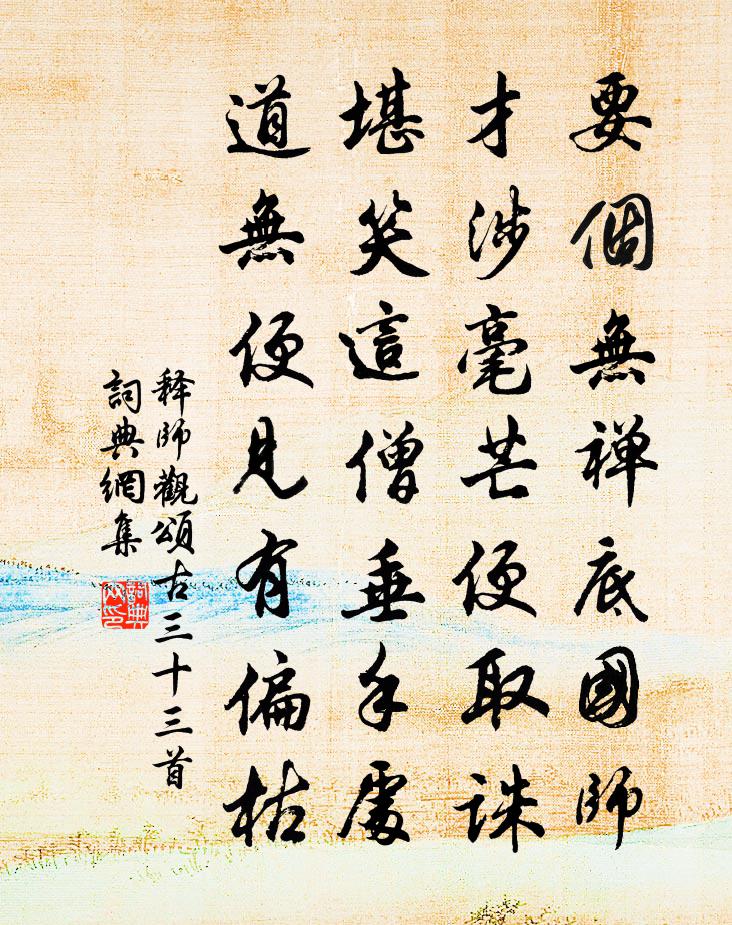 要個無禅底國師
才涉毫芒便取誅
堪笑這僧垂手處
道無便見有偏枯
释師觀頌古三十三首
詞典網集